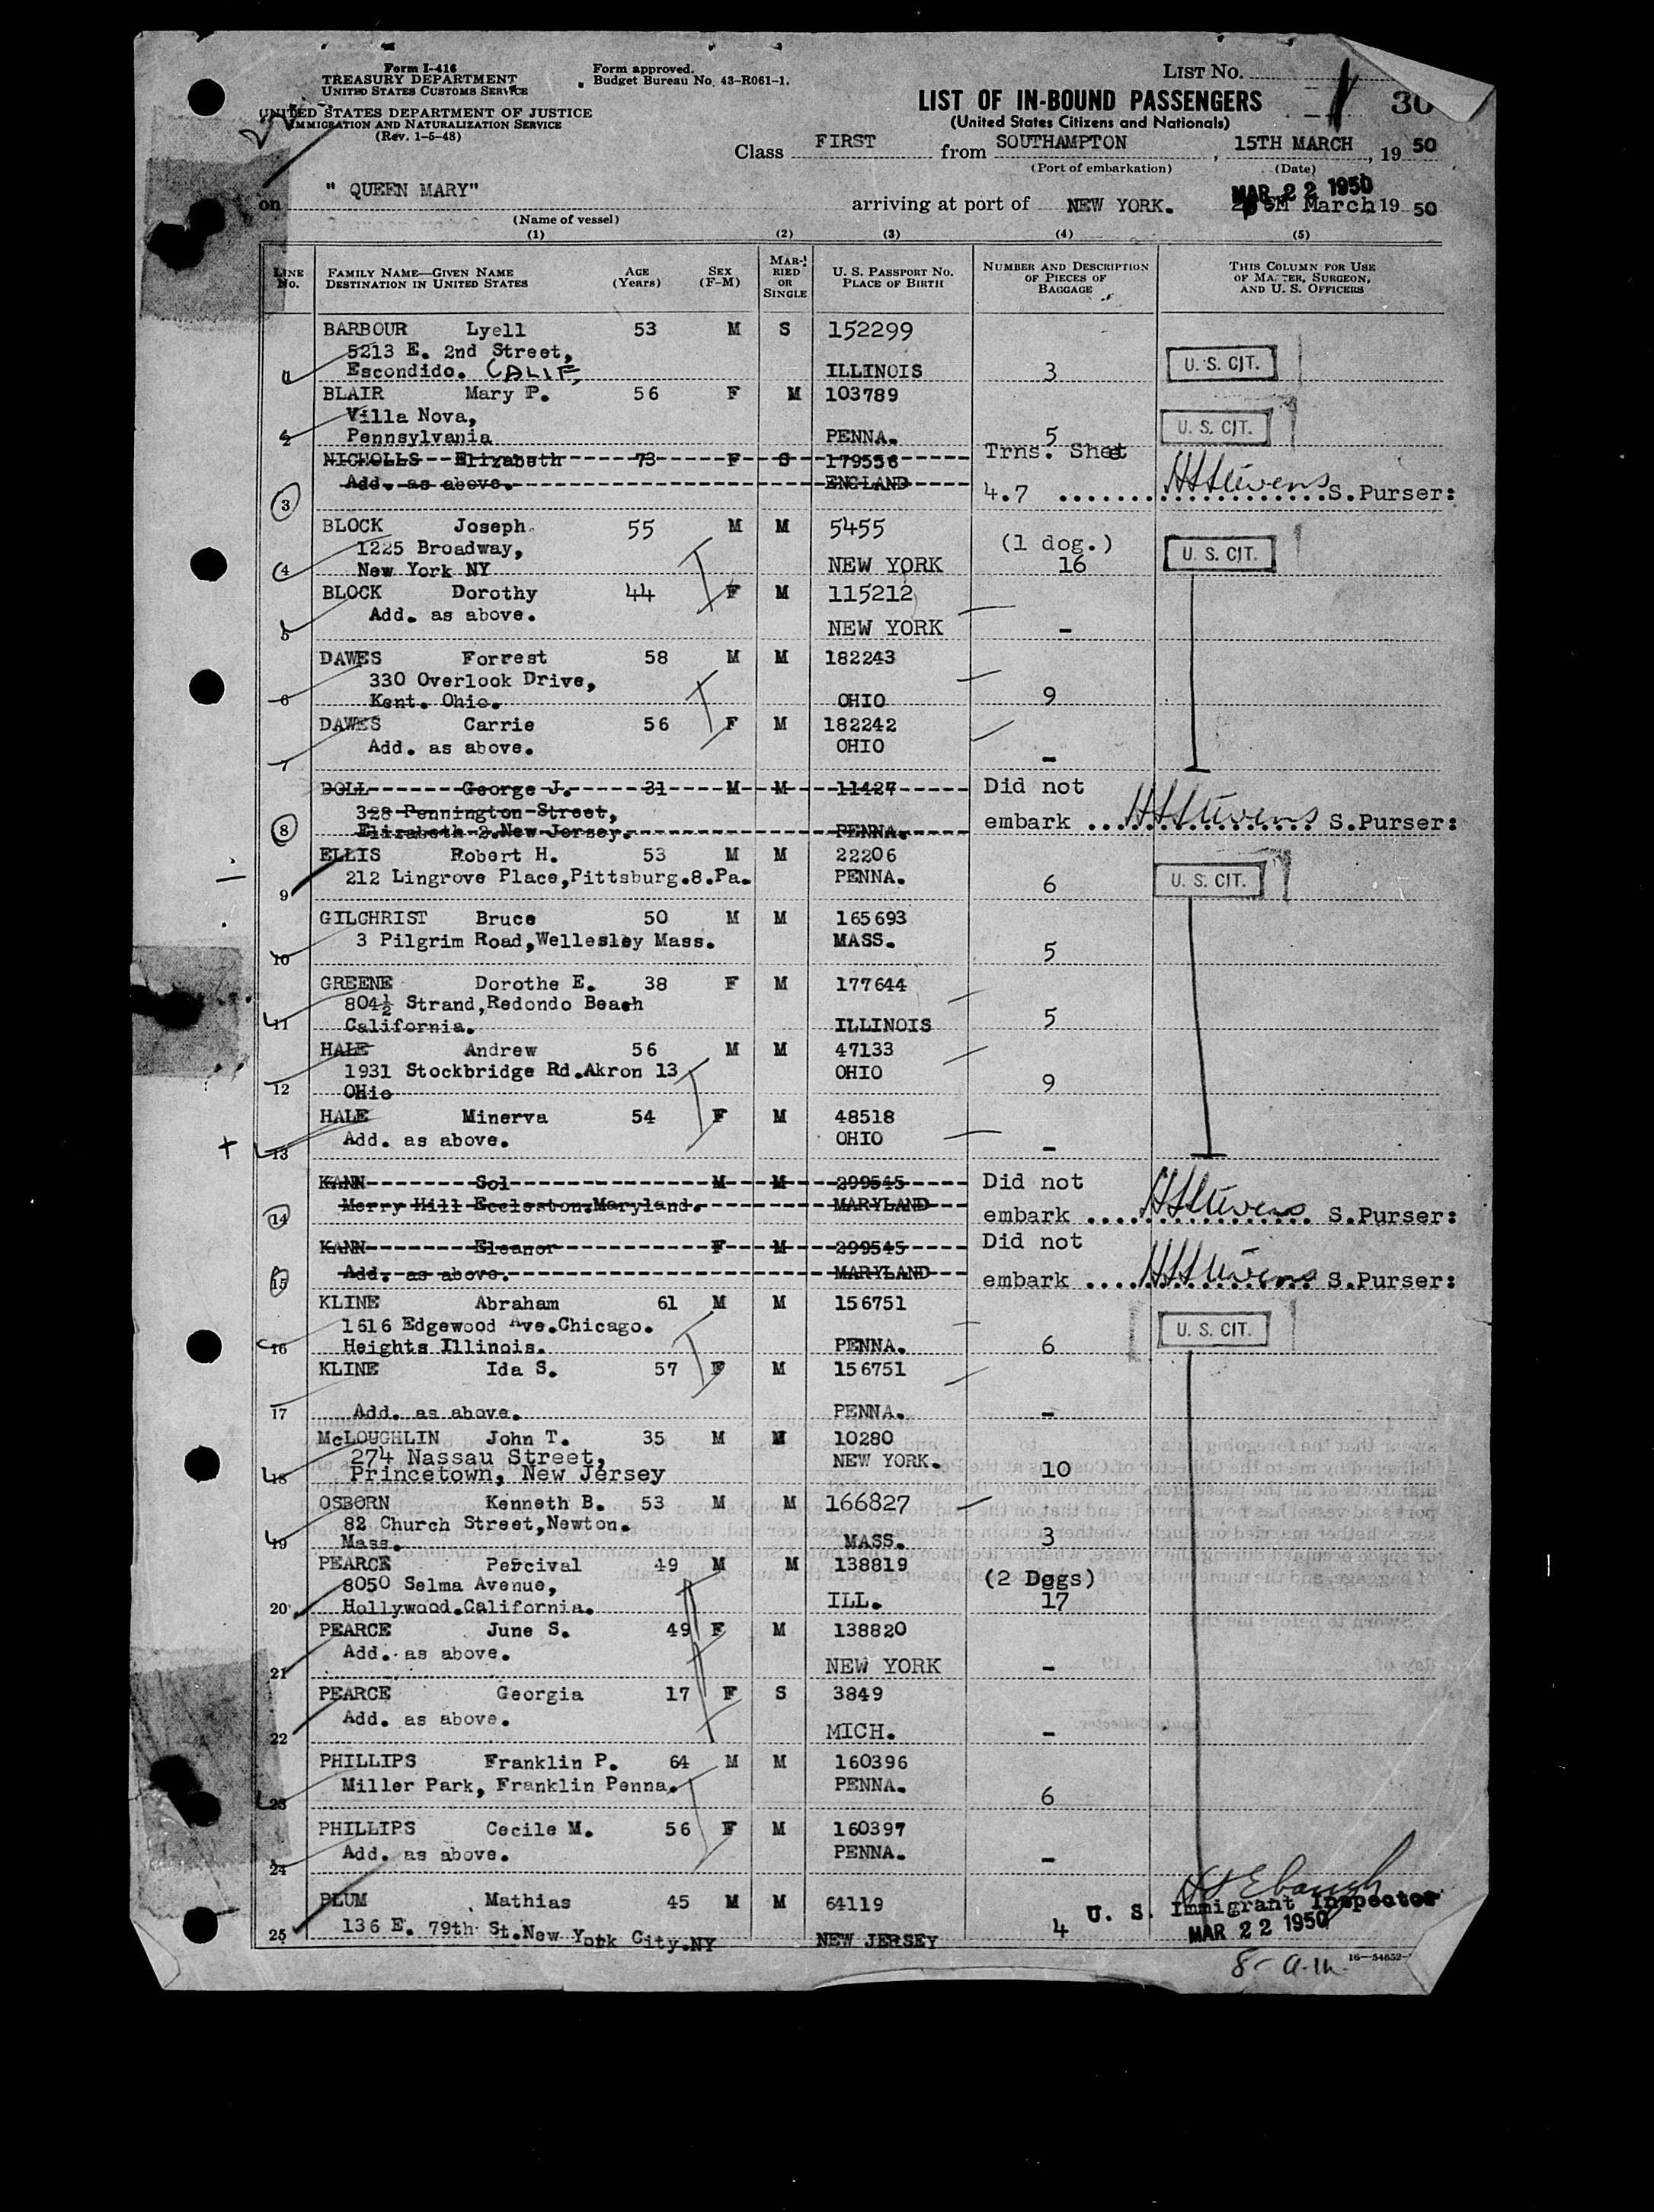 Form I-416
TREASURY DEPARTMENT
UNITED STATES CUSTOMS SERVICE
UNITED STATES DEPARTMENT OF JUSTICE
IMMIGRATION AND NATURALIZATION SERVICE
(Rev. 1-5-48)
Form approved.
Budget Bureau No. 43-R061-1.
LIST NO.
30
LIST OF IN-BOUND PASSENGERS
(United States Citizens and Nationals)
Class FIRST from SOUTHAMPTON, 15TH MARCH, 19 50
(Port of embarkation) (Date)
MAR 22 1950
on " QUEEN MARY" arriving at port of NEW YORK. March 19 50
(Name of vessel)
(1) (2) (3) (4) (5)
LINE NO. FAMILY NAME—GIVEN NAME DESTINATION IN UNITED STATES AGE (Years) SEX (F-M) MARRIED OR SINGLE U. S. PASSPORT NO. PLACE OF BIRTH NUMBER AND DESCRIPTION OF PIECES OF BAGGAGE THIS COLUMN FOR USE OF MASTER, SURGEON, AND U. S. OFFICERS
BARBOUR Lyell 53 M S 152299
5213 E. 2nd Street,
1 Escondido. CALIF. ILLINOIS 3 U. S. CIT.
BLAIR Mary P. 56 F M 103789
Villa Nova,
2 Pennsylvania PENNA. 5 U. S. CIT.
NICHOLLS Elizabeth 73 F S 179556 Trns. Shet
Add. as above. ENGLAND
3 4.7 HStevens S.Purser:
BLOCK Joseph 55 M M 5455
1225 Broadway, (1 dog.)
4 New York NY NEW YORK 16 U. S. CIT.
BLOCK Dorothy 44 F M 115212
Add. as above.
5 NEW YORK -
DAWES Forrest 58 M M 182243
330 Overlook Drive,
6 Kent. Ohio. OHIO 9
DAWES Carrie 56 F M 182242
Add. as above. OHIO
7 -
DOLL George J. 31 M M 11427 Did not
328 Pennington Street,
8 Elizabeth 2.New Jersey. PENNA. embark HStevens S.Purser:
ELLIS Robert H. 53 M M 22206
212 Lingrove Place,Pittsburg.8.Pa. PENNA.
9 6 U. S. CIT.
GILCHRIST Bruce 50 M M 165693
3 Pilgrim Road,Wellesley Mass. MASS.
10 5
GREENE Dorothe E. 38 F M 177644
804½ Strand,Redondo Beach
11 California. ILLINOIS 5
HALE Andrew 56 M M 47133
1931 Stockbridge Rd.Akron 13 OHIO
12 OHio 9
HALE Minerva 54 F M 48518
Add. as above. OHIO
13 -
KANN Sol M M 299545 Did not
Merry Hill Eccleston.Maryland. MARYLAND
14 embark HStevens S.Purser:
KANN Eleanor F M 299545 Did not
Add. as above. MARYLAND
15 embark HStevens S.Purser:
KLINE Abraham 61 M M 156751
1616 Edgewood Ave.Chicago.
16 Heights Illinois. PENNA. 6 U. S. CIT.
KLINE Ida S. 57 F M 156751
17 Add. as above. PENNA. -
McLOUGHLIN John T. 35 M M 10280
274 Nassau Street, NEW YORK.
18 Princetown, New Jersey 10
OSBORN Kenneth B. 53 M M 166827
82 Church Street,Newton.
19 Mass. MASS. 3
PEARCE Percival 49 M M 138819
8050 Selma Avenue, (2 Dogs)
20 Hollywood.California. ILL. 17
PEARCE June S. 49 F M 138820
Add. as above.
21 NEW YORK -
PEARCE Georgia 17 F S 3849
Add. as above.
22 MICH. -
PHILLIPS Franklin P. 64 M M 160396
Miller Park, Franklin Penna. PENNA.
23 6
PHILLIPS Cecile M. 56 F M 160397
Add. as above. PENNA.
24 -
PLUM Mathias 45 M M 64119
136 E. 79th St.New York City.NY
25 NEW JERSEY 4
U. S. Immigrant Inspector
MAR 22 1950
8- a.m.